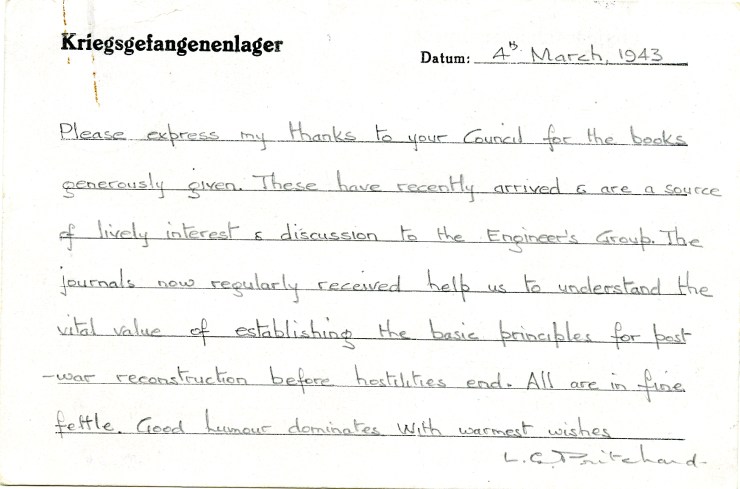 Kriegsgefangenenlager
Datum: 4th March, 1943
Please express my thanks to your Council for the books
generously given. These have recently arrived & are a source
of lively interest & discussion to the Engineer's Group. The
journals now regularly received help us to understand the
vital value of establishing the basic principles for post
-war reconstruction before hostilities end. All are in fine
fettle. Good humour dominates With warmest wishes
L. G. Pritchard.